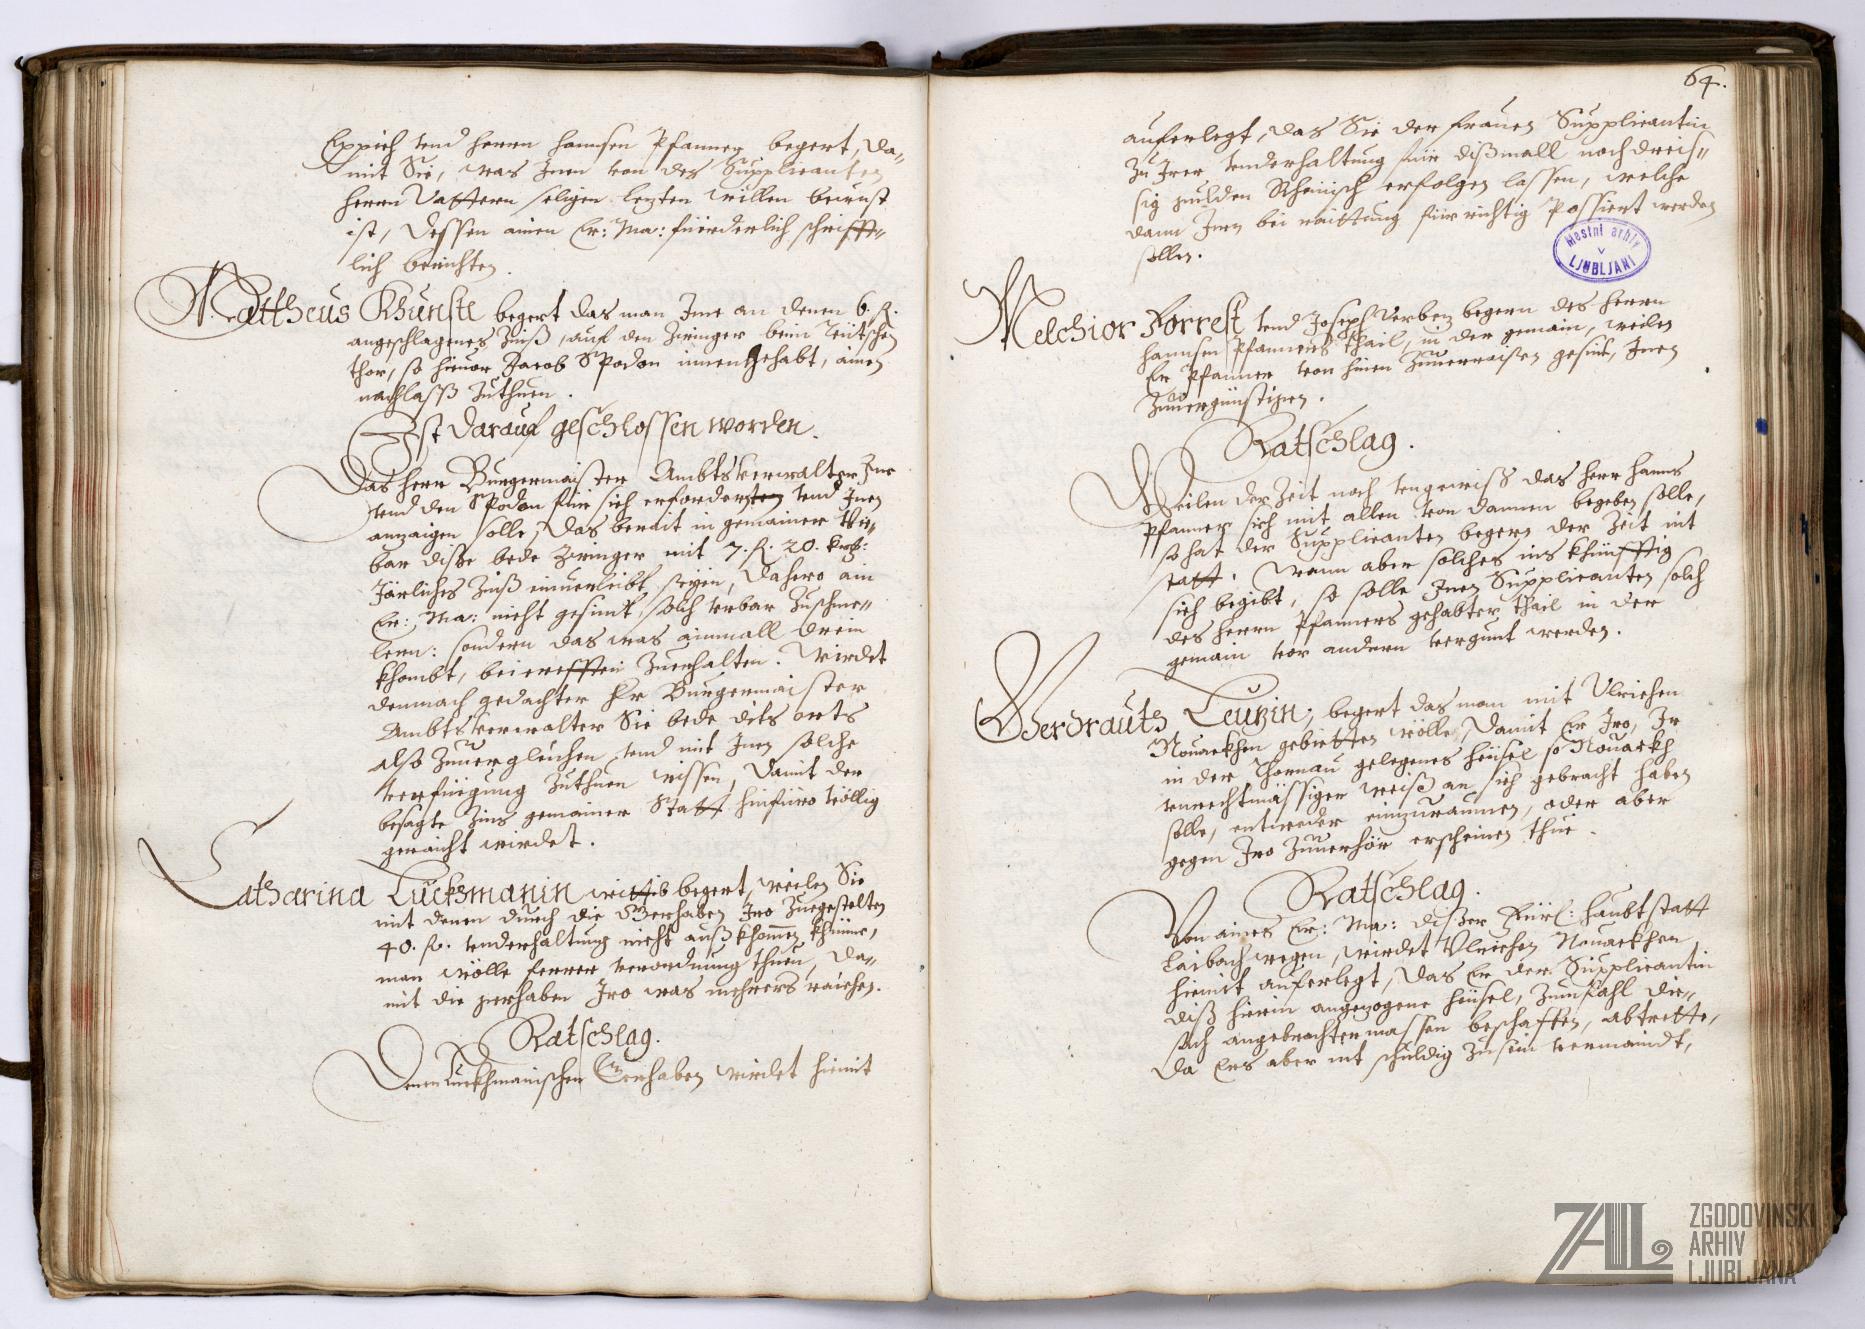 Eppich vnd herrn hannsen Pfanner begert, da„
mit Sie, was Jnen von des Supplicanten
herrn Vattern seligen lezten willen bewust
ist, dessen ainen Er: Ma: fürderlich schrifft„
lich berichten.
Mattheus Khunstl begert das man Jme an denen 6. fl.
angeschlagenes Zinß, auf den Zwinger beim Teütschen
thor, so hieuor Jacob Spodon innen gehabt, ainen
nachlass Zuthuen.
Ist darauf geschlossen worden.
Das herr Burgermaister Ambtsverwalter Jne
vnd den Spodon für sich erfordern vnd Jnen
anzaigen solle, das berait in gemainer Vr„
bar dise bede Zwinger mit 7. fl. 20. kr:
Järliches Zinß einuerleibt seyen, dahero ain
Er: Ma: nicht gesinnt, solch vrbar Zuschme„
lern: sondern das was ainmall drein
khombt, bei Zuerhalten. Wirdet
demnach gedachter Hr Burgermaister
Ambtsverwalter Sie bede dits orts
also Zuuergleichen, vnd mit Jnen solche
verfüegung Zuthuen wissen, damit der
besagte Zins gemainer Statt hinfüro völlig
geraicht wirdet.
Catharina Luckhmanin wittib begert, weilen Sie
mit denen durch die Gerhaben Jro Zuegestelten
40. fl. vnderhaltung nicht ausskhomen khünne,
man wölle ferrer verordnung thuen, da„
mit die gerhaben Jro was mehrers raichen.
Ratschlag.
Denen Luckhmanischen Gerhaben wirdet hiemit
64.
auferlegt, das Sie der frauen Supplicantin
Zu Jrer vnderhaltung für dißmall noch dreis„
sig gulden Rheinisch erfolgen lassen, welche
dann Jnen bei raittung für richtig Passiert werden
sollen.
Mestni arhiv
v
LJUBLJANI
Melchior Forrest vnd Joseph Verbez begern des herrn
hannsen Pfanners thail, in der gemain, weilen
Er Pfanner von hinen Zuuerraisen gesint, Jnen
Zuuergünstigen.
Ratschlag.
Weilen der Zeit noch vngewiss das herr Hanns
Pfanner sich mit allen von dannen begeben solle,
so hat der Supplicanten begern der Zeit nit
statt. Wann aber solches ins khünfftig
sich begibt, so solle Jnen Supplicanten solch
des herrn Pfanners gehabter thail in der
gemain vor andern vergunt werden.
Gerdrauts Leuzin, begert das man mit Vlrichen
Nouackhen gebietten wölle, damit Er Jro, Jr
in der Thornau gelegenes heüsel so Nouackh
vnrechtmässiger weiß an sich gebracht haben
solle, entweder einzuraumen, oder aber
gegen Jro Zuuerhör erscheinen thue.
Ratschlag.
Von aines Er: Ma: diser Fürl: haubtstatt
Laibach wegen, wirdet Vlrichen Nouackhen
hiemit auferlegt, das Er der Supplicantin
diss hierin angezogene heüsel, Zumfahl die„
sach angebrachtermassen beschaffen, abtrette,
da Ers aber nit schuldig Zusein vermaindt,
ZAL
ZGODOVINSKI
ARHIV
LJUBLJANA